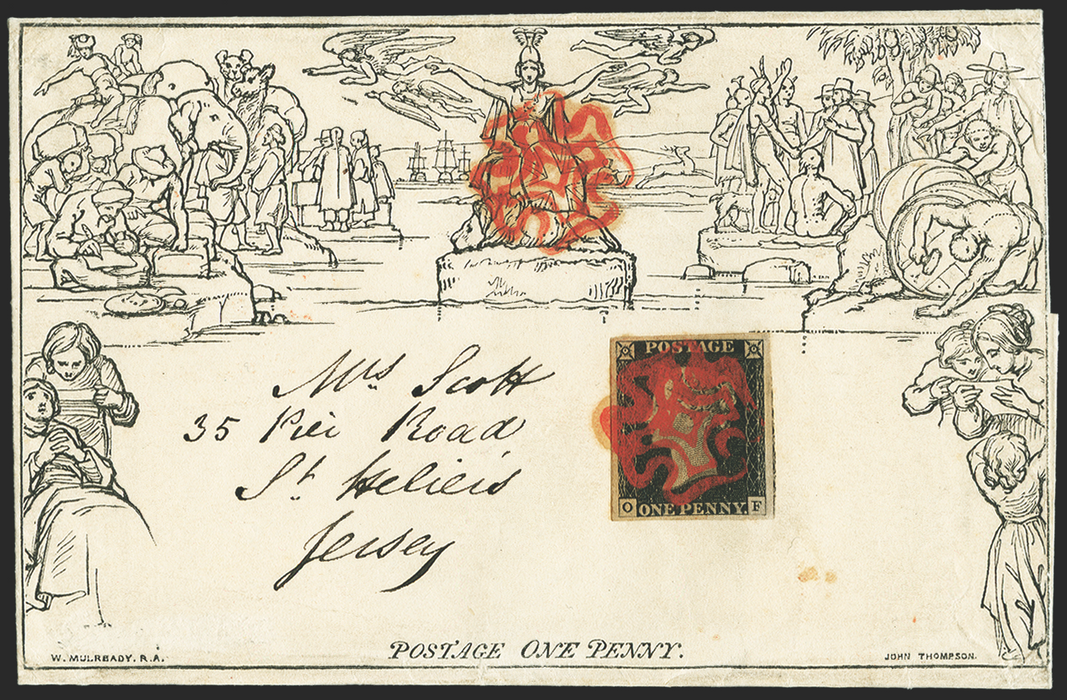 To
Mrs Scott
35 Pier Road
St Heliers
Jersey
POSTAGE
O ONE PENNY. F
POSTAGE ONE PENNY.
W. MULREADY. R.A.
JOHN THOMPSON.